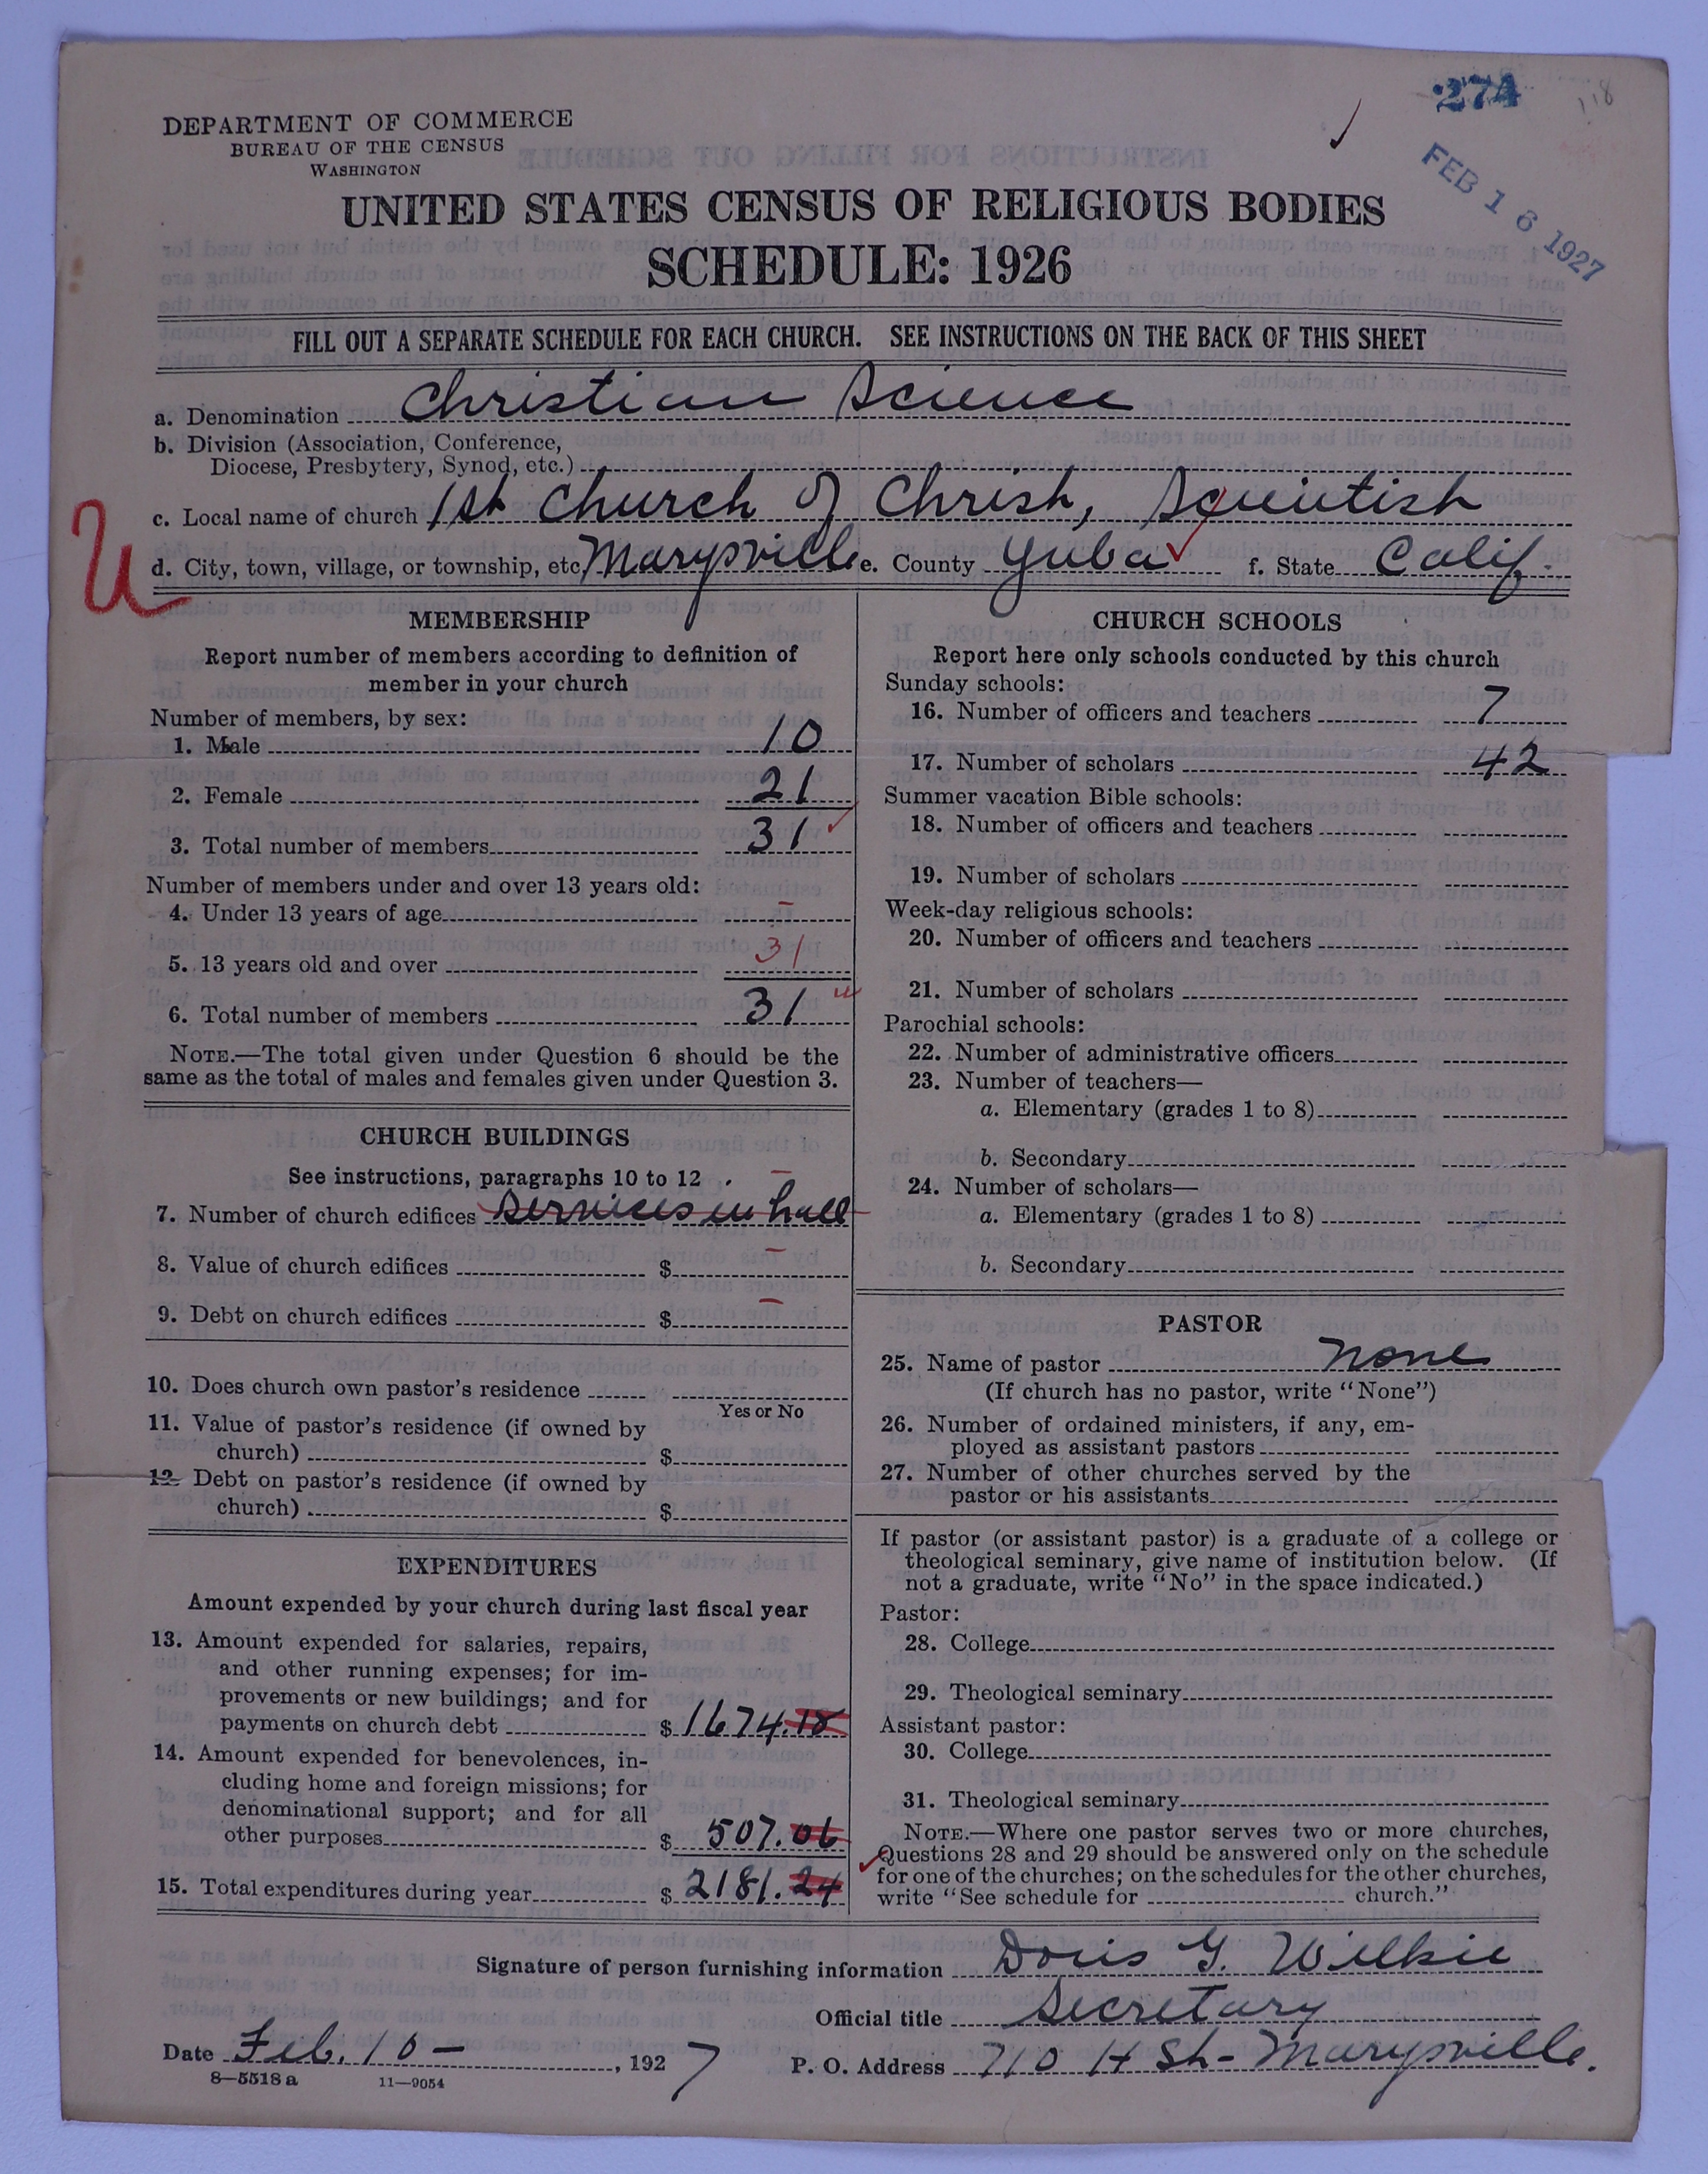 274
FEB 16 1927
DEPARTMENT OF COMMERCE
BUREAU OF THE CENSUS
WASHINGTON
UNITED STATES CENSUS OF RELIGIOUS BODIES
SCHEDULE: 1926
FILL OUT A SEPARATE SCHEDULE FOR EACH CHURCH. SEE INSTRUCTIONS ON THE BACK OF THIS SHEET
a. Denomination Christian Science
b. Division (Association, Conference,
Diocese, Presbytery, Synod, etc.)
c. Local name of church 1st Church of Christ, Scientist
U
d. City, town, village, or township, etc. Marysville e. County Yuba f. State Calif.
MEMBERSHIP
Report number of members according to definition of
member in your church
Number of members, by sex:
1. Male 10
2. Female 21
3. Total number of members 31
Number of members under and over 13 years old:
4. Under 13 years of age –
5. 13 years old and over 31
6. Total number of members 31
NOTE.—The total given under Question 6 should be the
same as the total of males and females given under Question 3.
CHURCH BUILDINGS
See instructions, paragraphs 10 to 12
7. Number of church edifices Services in hall –
8. Value of church edifices $ –
9. Debt on church edifices $ –
10. Does church own pastor's residence
Yes or No
11. Value of pastor's residence (if owned by
church) $
12. Debt on pastor's residence (if owned by
church) $
EXPENDITURES
Amount expended by your church during last fiscal year
13. Amount expended for salaries, repairs,
and other running expenses; for im-
provements or new buildings; and for
payments on church debt $ 1674.18
14. Amount expended for benevolences, in-
cluding home and foreign missions; for
denominational support; and for all
other purposes $ 507.06
15. Total expenditures during year $ 2181.24
CHURCH SCHOOLS
Report here only schools conducted by this church
Sunday schools:
16. Number of officers and teachers 7
17. Number of scholars 42
Summer vacation Bible schools:
18. Number of officers and teachers
19. Number of scholars
Week-day religious schools:
20. Number of officers and teachers
21. Number of scholars
Parochial schools:
22. Number of administrative officers
23. Number of teachers—
a. Elementary (grades 1 to 8)
b. Secondary
24. Number of scholars—
a. Elementary (grades 1 to 8)
b. Secondary
PASTOR
25. Name of pastor None
(If church has no pastor, write "None")
26. Number of ordained ministers, if any, em-
ployed as assistant pastors
27. Number of other churches served by the
pastor or his assistants
If pastor (or assistant pastor) is a graduate of a college or
theological seminary, give name of institution below. (If
not a graduate, write "No" in the space indicated.)
Pastor:
28. College
29. Theological seminary
Assistant pastor:
30. College
31. Theological seminary
NOTE.—Where one pastor serves two or more churches,
Questions 28 and 29 should be answered only on the schedule
for one of the churches; on the schedules for the other churches,
write "See schedule for church."
Signature of person furnishing information Doris G. Wilkie
Official title Secretary
Date Feb. 10 – , 1927 P. O. Address 710 H St – Marysville.
8—5518 a 11—9054